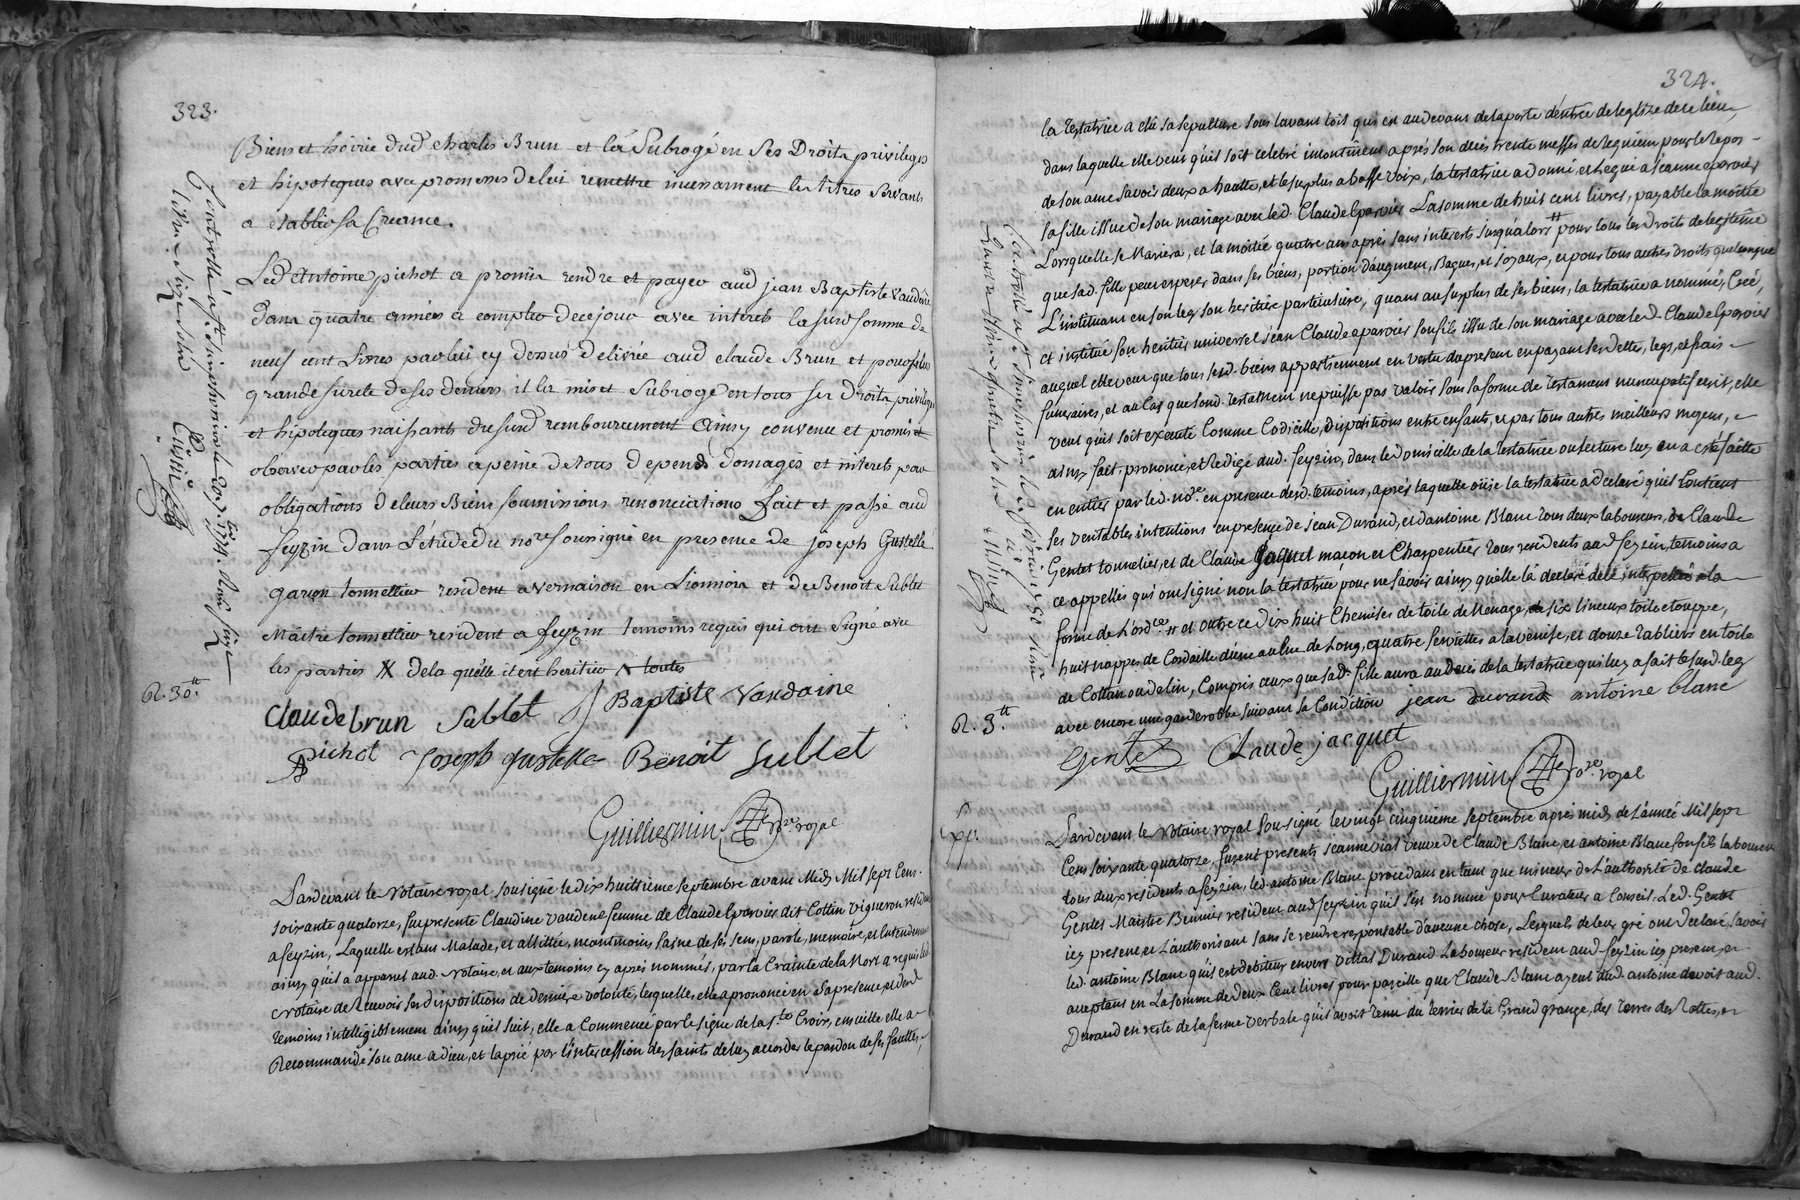 323.
Biens et hoirie dud. Charles Brun et l'a Subrogé en Ses Droits privileges
et hipoteques avec promesses de lui remettre incessament les titres Servants
a etablir sa Creance.
Led. Antoine pichot a promis rendre et payer aud. jean Baptiste Vaudaine
dans quatre années a compter de ce jour avec interets la susd. somme de
neuf cent Livres par lui cy dessus delivrée aud. Claude Brun et pour plus
grande sureté de ses deniers il l'a mis et Subrogé en tous ses Droits privileges
et hipoteques naissants du susd. remboursement Ainsy convenu et promis et
observer par les parties a peine de tous depends domages et interets par
obligations de leurs Biens soumissions renonciations fait et passé aud.
feyzin dans L'étude du no.re sousigné en presence de Joseph Gustelle
garçon tonnellier resident a vernaison en Lionnois et de Benoit Sublet
Maitre tonnellier resident a feyzin temoins requis qui ont Signé avec
les parties X de la quelle il est heritier
R. 30.tt
Claude brun Sublet J Baptiste Vaudaine
Pichot Joseph gustelle Bënoit Sublet
Guilliermin no.re royal
Pardevant le Notaire royal sousigné le dix huitieme septembre avant Midy Mil sept Cent
soixante quatorze, fu presente Claudine vaudene femme de Claude Eparvier dit Cottin Vigneron resident
a feyzin, Laquelle estant Malade, et allittée, neantmoins saine de ses sens, parole, memoire, et Entendement
ainsy qu'il a apparut aud. Notaire, et aux temoins cy après nommés, par la Crainte de la Mort a requis led.
Notaire de Recevoir ses dispositions de derniere volonté, lesquelles elle a prononcé en sa presence, et desd.
temoins intelligiblement ainsy qu'il suit, elle a Commencé par le signe de la s.te Croix, ensuitte elle a
Recommandé son ame a dieu, et la prié par l'intercession des saints de luy accorder le pardon de ses fauttes,
324.
la testatrice a elu sa sepulture sous lavant toit qui est au devant de la porte d'entrée de leglize de ce lieu,
dans laquelle elle veut qu'il soit celebré incontinent après son decés trente messes de Requiem pour le repos
de son ame savoir deux a haute, et le surplus a basse voix, la testatrice a donné et Legué a jeanne eparvier
sa fille issue de son mariage avec led. Claude Eparvier La somme de huit cent livres, payable la moitié
Lorsquelle se Mariera, et la moitié quatre ans après sans interets jusqu'alors # pour tous les droits de legitime
que sad. fille peut esperer dans ses biens, portion d'augment, Bagues, et joyaux, et pour tous autres droits quelconque
L'instituant en son legs son heritiere particuliere, quant au surplus de ses biens, la testatrice a nommé, Créé,
et institué son heritier universel jean Claude eparvier son fils issu de son mariage avec led. Claude Eparvier
auquel elle veut que tous sesd. biens appartiennent en vertu du present en payant ses dettes, legs, et frais
funeraires, et au Cas que sond. testament ne puisse pas valoir sous la forme de testament nuncupatif ecrit, elle
veut qu'il soit exécuté Comme Codicille, dispositions entre enfants, et par tous autres meilleurs moyens,
ainsy fait, prononcé, et Redigé aud. feyzin, dans le domicille de la testatrice ou lecture luy en a esté faitte
en entier par led. no.re en presence desd. temoins, après laquelle ouïe la testatrice a declaré qu'il Contient
ses veritables intentions en presence de jean Durand, et d'antoine Blanc tous deux laboureurs, de Claude
Gentet tonnelier, et de Claude Jaquet macon et Charpentier tous residents aud. feyzin, temoins a
ce appellés qui ont signé non la testatrice pour ne savoir ainsy qu'elle la declaré de ce interpellée a la
forme de Lord.ce # et outre ce dix huit Chemises de toile de Menage, six linceux toile etouppe,
huit nappes de Cordaille d'une aulne de Long, quatre serviettes a la venise, et douze tabliers en toile
de Cotton ou de lin, Compris ceux que sad. fille aura au decés de la testatrice qui luy a fait le susd. legs
avec encore une garderobbe suivant sa Condition jean durand antoine blanc
R. 3.tt
Gentet Claude jacquet
Guilliermin no.re royal
Pardevant le Notaire royal sousigné le vingt cinquieme septembre après midy de L'année Mil sept
Cent soixante quatorze, furent presents jeanne Vial veuve de Claude Blanc, et antoine Blanc son fils laboureur
tous deux residents a feyzin, led. antoine Blanc procedant en tant que mineur de L'authorité de Claude
Gentet Maistre Bennier resident aud. feyzin qu'il s'est nommé pour Curateur a Conseil, Led. Gentet
icy present, et L'authorisant sans se rendre responsable d'aucune chose, Lesquels de leur gré ont declaré, savoir
led. antoine Blanc qu'il est debiteur envers Vittal Durand Laboureur resident aud. feyzin icy present, et
acceptant en La somme de deux Cent livres pour pareille que Claude Blanc ayeul dud. antoine devoit aud.
Durand en reste de la ferme verbale qu'il avoit tenu du terrier de la Grand grange, des terres des Rottes, et